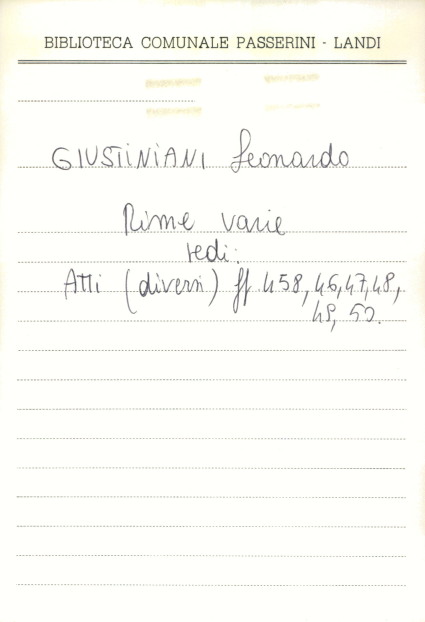 BIBLIOTECA COMUNALE PASSERINI - LANDI
GIUSTINIANI Leonardo
Rime varie
vedi:
Atti (diversi) ff. 458, 46, 47, 48,
49, 50.